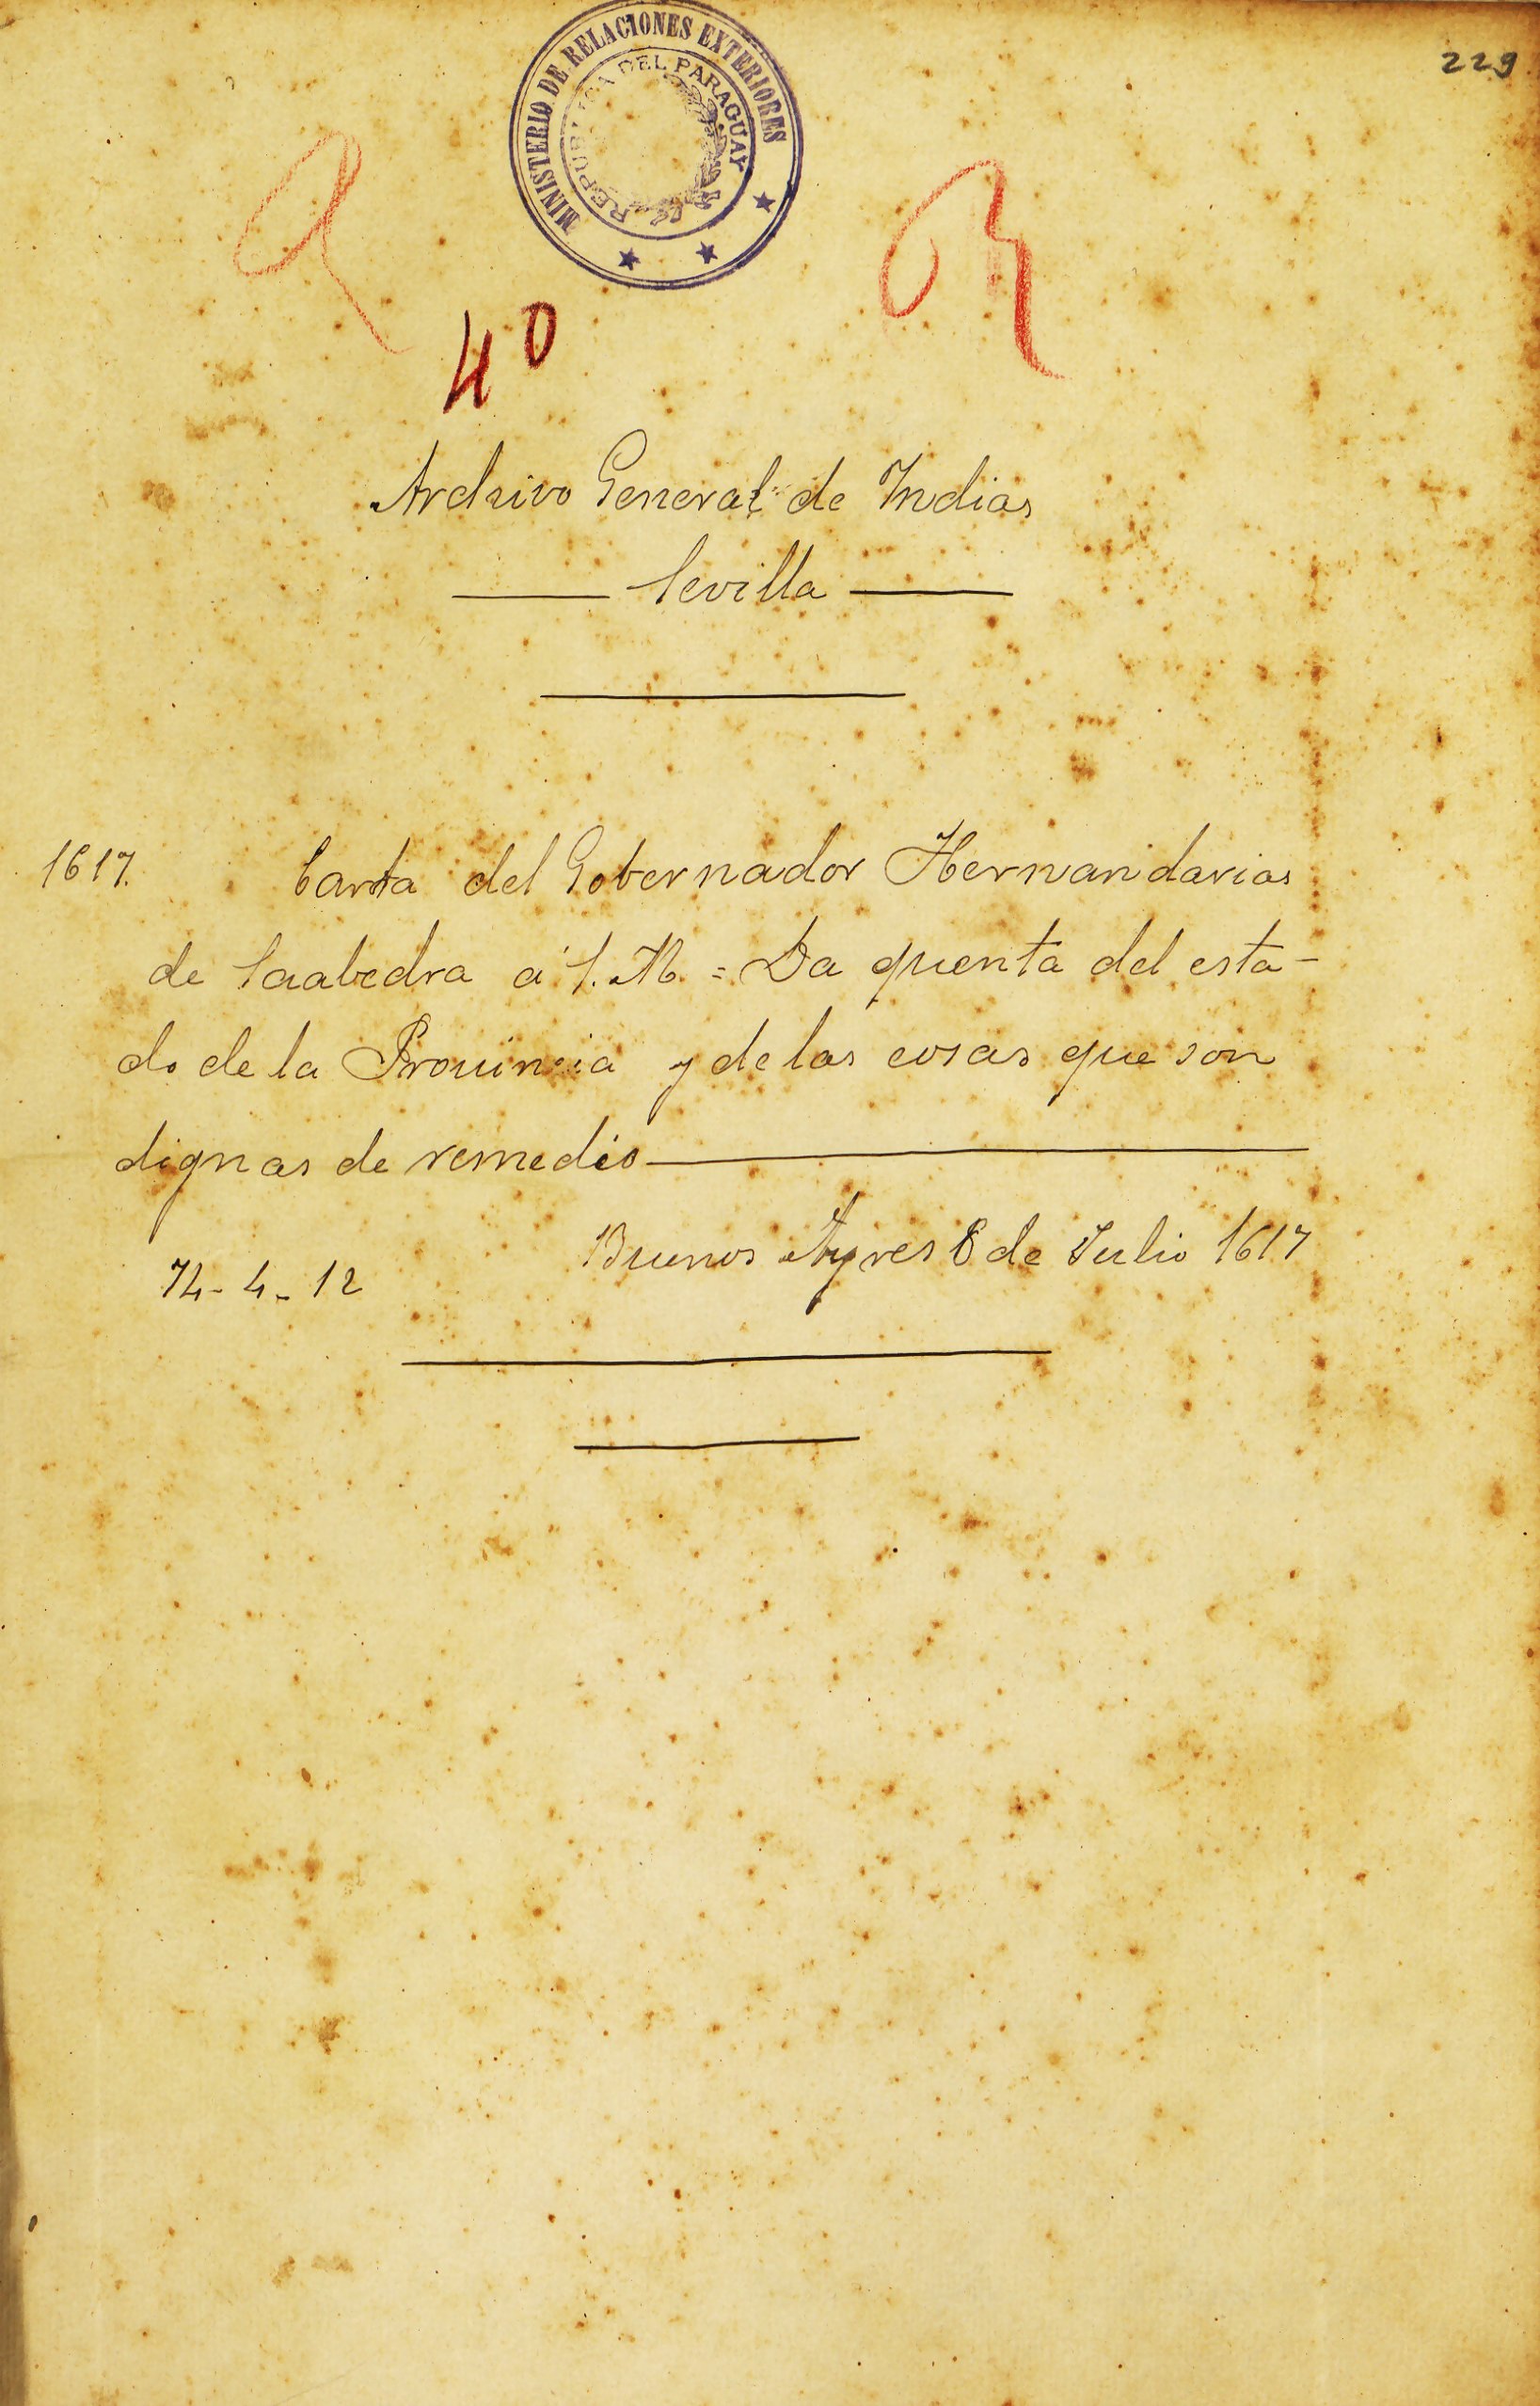 229
MINISTERIO DE RELACIONES EXTERIORES
REPUBLICA DEL PARAGUAY
40
Archivo General de Indias
Sevilla
1617. Carta del Gobernador Hernandarias
de Saabedra á S. M. = Da quenta del esta-
do de la Prouincia y de las cosas que son
dignas de remedio
Buenos Ayres 8 de Julio 1617
74-4-12